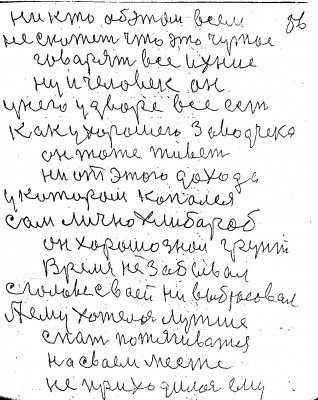 никто обэтом всем 86
нескожет что это чужое
говарят все ихние
ну и человек он
унего удворе все есть
Как ухорошего Заводчека
онтоже живет
ниотэтого дохода
укоторам копался
сам лично хлибароб
он хорошо знал грунт
Время не Забывал
сголовесваей ни выбросовал
Йему хотелоя лутше
спат потягиватся
насваем месте
неприходилоя ему